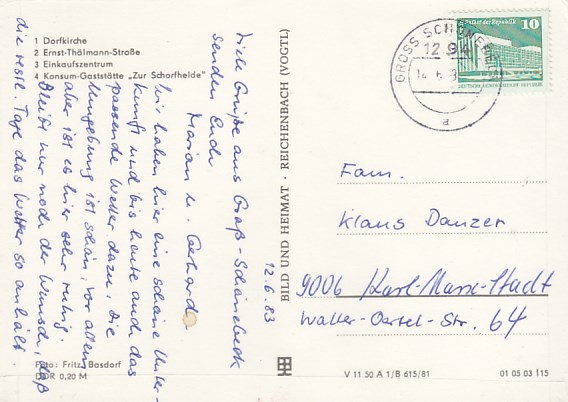 1 Dorfkirche
2 Ernst-Thälmann-Straße
3 Einkaufszentrum
4 Konsum-Gaststätte „Zur Schorfheide"
12.6.83
Viele Grüße aus Groß-Schönebeck
senden Euch
Marian u. Gerhard
Wir haben hier eine schöne Unter-
kunft und bis heute auch das
passende Wetter dazu, die
Umgebung ist schön, vor allem
aber ist es hier sehr ruhig.
Bleibt nur noch der Wunsch, daß
die restl. Tage das Wetter so anhält.
Foto: Fritz Basdorf
DDR 0,20 M
BILD UND HEIMAT · REICHENBACH (VOGTL)
V 11 50 A 1/B 615/81
01 05 03 115
GROSS SCHÖNEBECK
12.6.
a
Palast der Republik 10
DEUTSCHE DEMOKRATISCHE REPUBLIK
Fam.
Klaus Danzer
9006 Karl-Marx-Stadt
Walter-Oertel-Str. 64